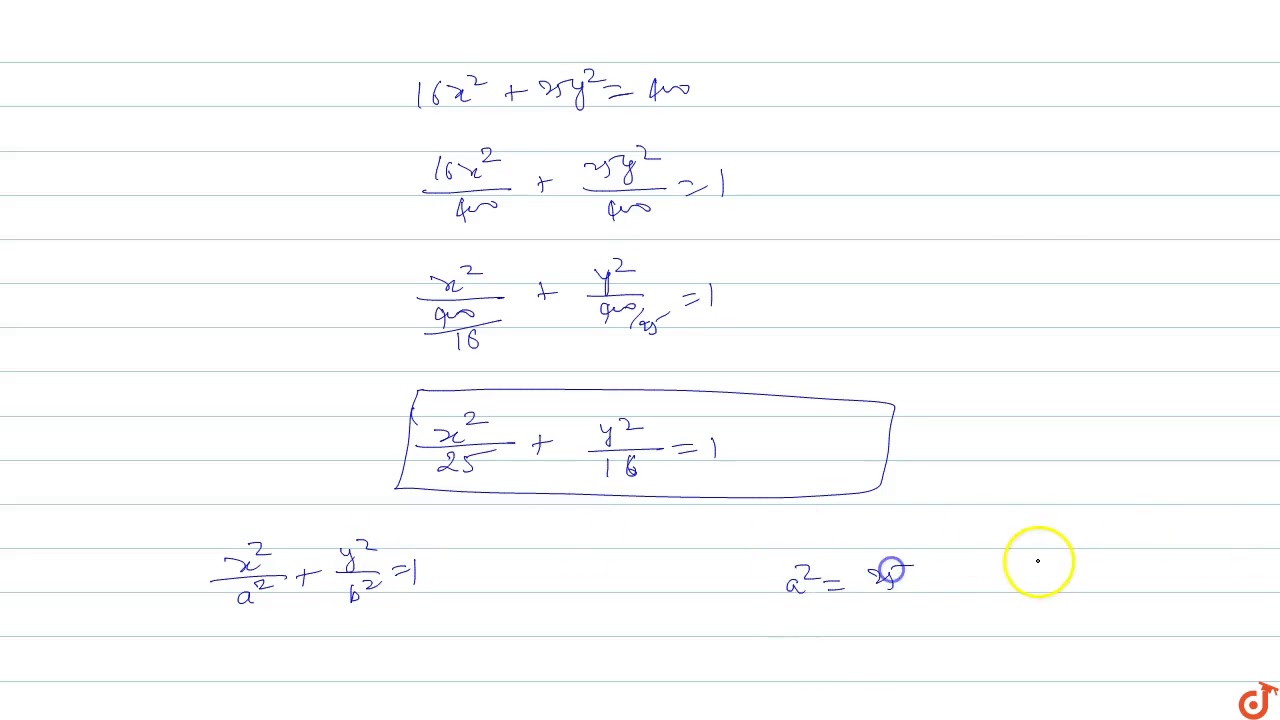 16x² + 25y² = 400
16x²/400 + 25y²/400 = 1
x²/(400/16) + y²/(400/25) = 1
x²/25 + y²/16 = 1
x²/a² + y²/b² = 1
a² = 25